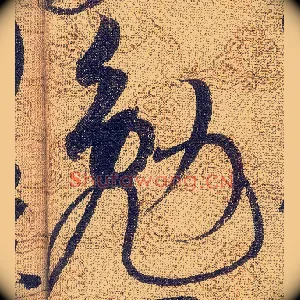 勉
Shufawang.CN